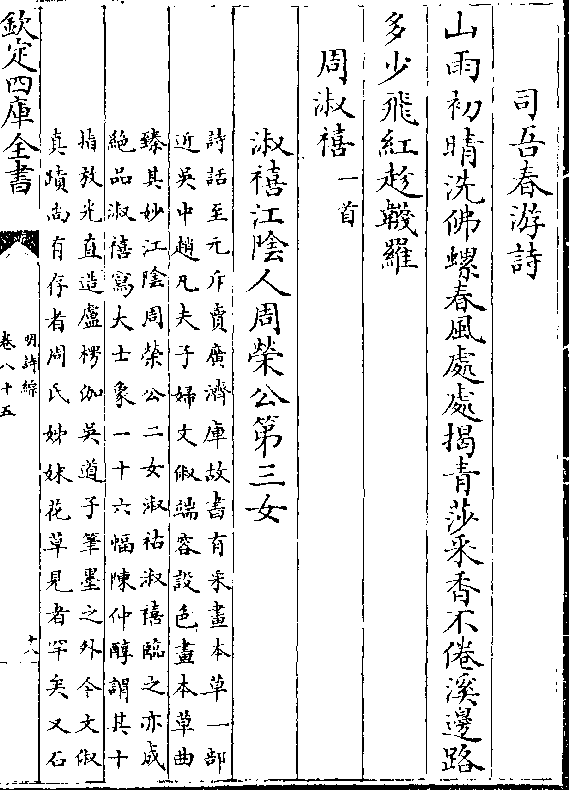 司吾春游詩
山雨初晴洗佛螺春風處處揭青莎采香不倦溪邊路
多少飛紅趁襪羅
周淑禧一首
淑禧江陰人周榮公第三女
詩話至元斥賣廣濟庫故書有采畫本草一部
近吳中趙凡夫子婦文俶端容設色畫本草曲
臻其妙江陰周榮公二女淑祜淑禧臨之亦成
絶品淑禧寫大士象一十六幅陳仲醇謂其十
指放光直造盧楞伽吳道子筆墨之外今文俶
真蹟尚有存者周氏姊妹花草見者罕矣又石
欽定四庫全書
明詩綜
卷八十五
十八